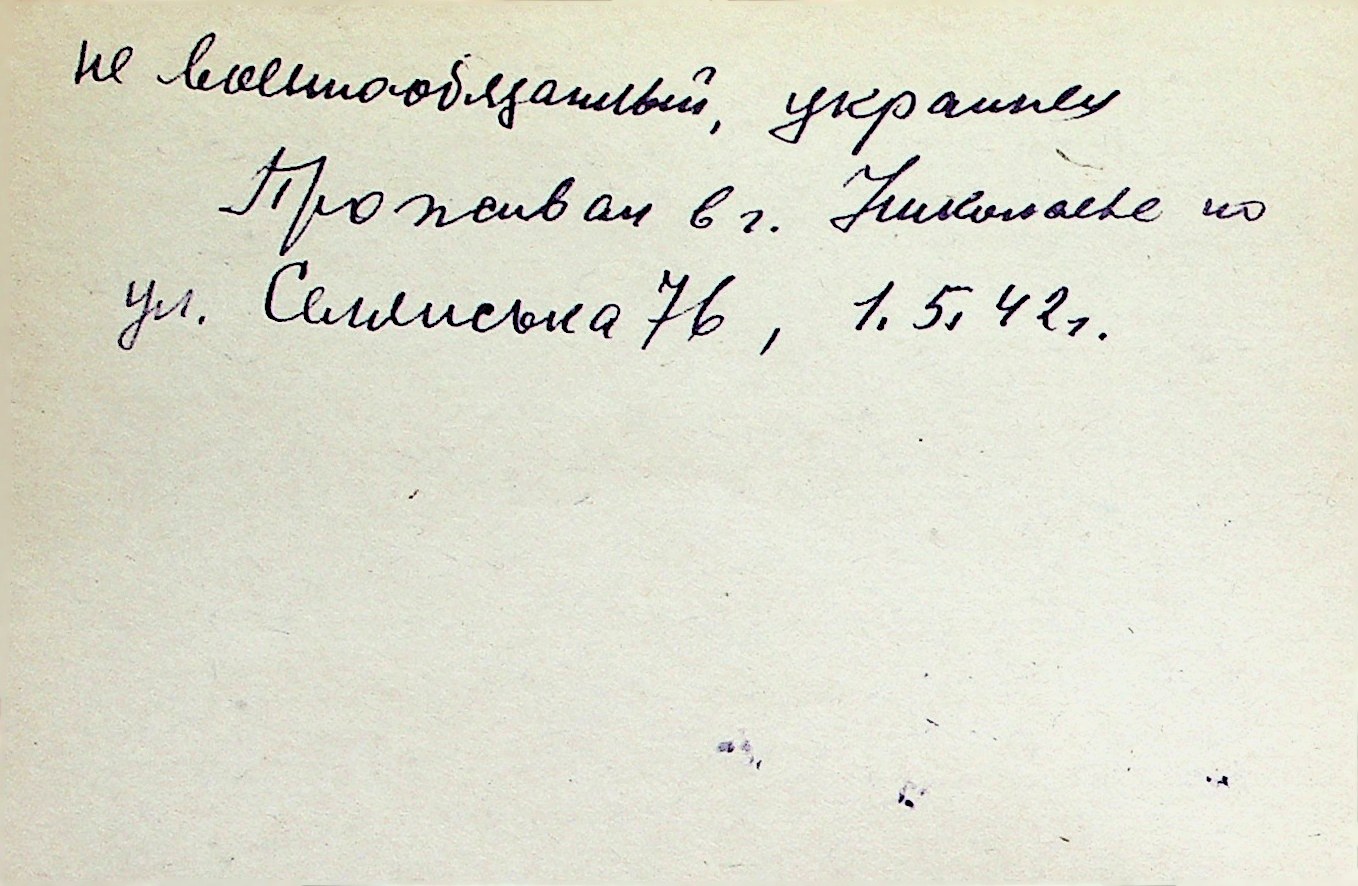 не военнообязанный, украинец
Проживал в г. Николаеве по
ул. Селянська 76, 1.5.42г.